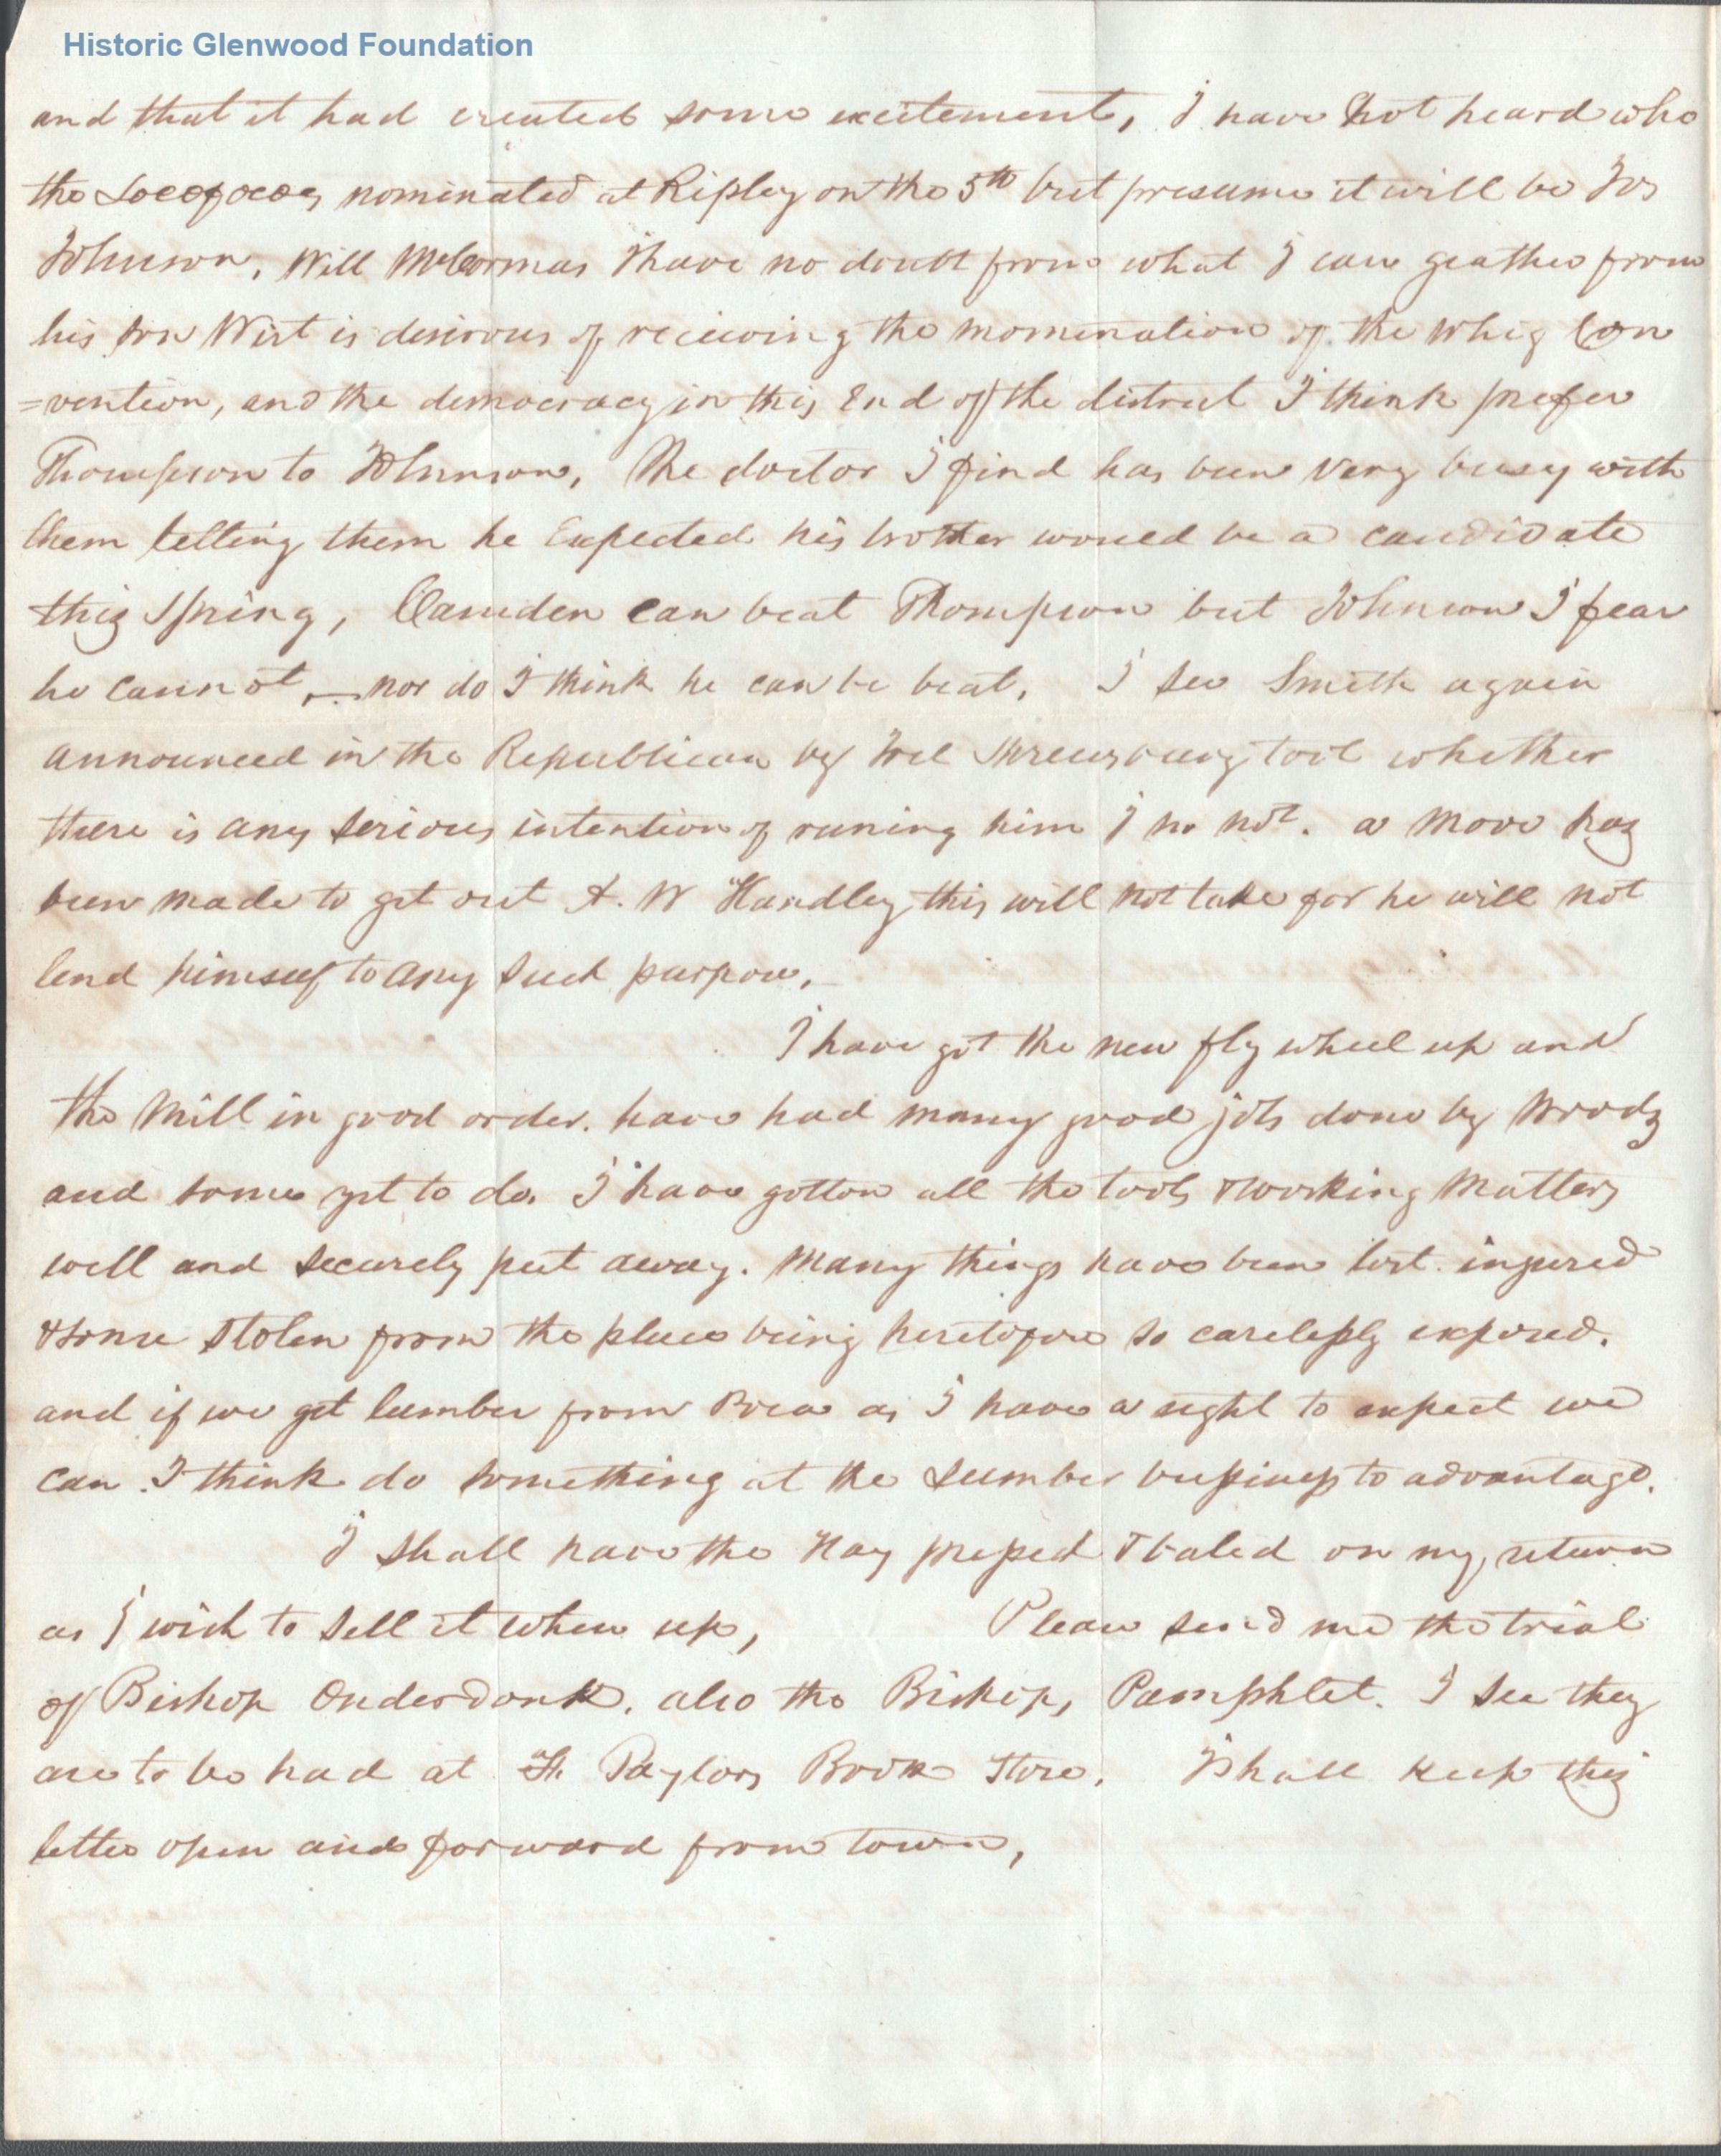 Historic Glenwood Foundation
and that it had created some excitement, I have not heard who
the Locofocos nominated at Ripley on the 5th but presume it will be Jos
Johnson, Will McComas I have no doubt from what I can geather from
his son Wirt is desirous of recieving the nomination of the Whig Con
=vention, and the democracy in this End of the district I think prefer
Thompson to Johnson, The doctor I find has been very busy with
them telling them he Expected his brother would be a candidate
this spring, Camden can beat Thompson but Johnson I fear
he cannot, — nor do I think he can be beat, I see Smith again
announced in the Republican by Joel Shrewsbury but whether
there is any serious intention of runing him I no not. a move has
been made to get out A. W Handley this will not take for he will not
lend himself to any such purpose,
I have got the new fly wheel up and
the Mill in good order. have had many good jobs done by Woods
and some yet to do. I have gotton all the tools & working Matters
well and securely put away. Many things have been lost. injured
& some stolen from the place being heretofore so carelessly exposed.
and if we get lumber from as I have a right to expect we
can I think do something at the Lumber business to advantage.
I shall have the Hay pressed & baled on my return
as I wish to sell it when up, Please send me the trial
of Bishop Onderdonk. also the Bishops Pamphlet. I see they
are to be had at Taylors Book Store. I shall keep this
letter open and forward from town,